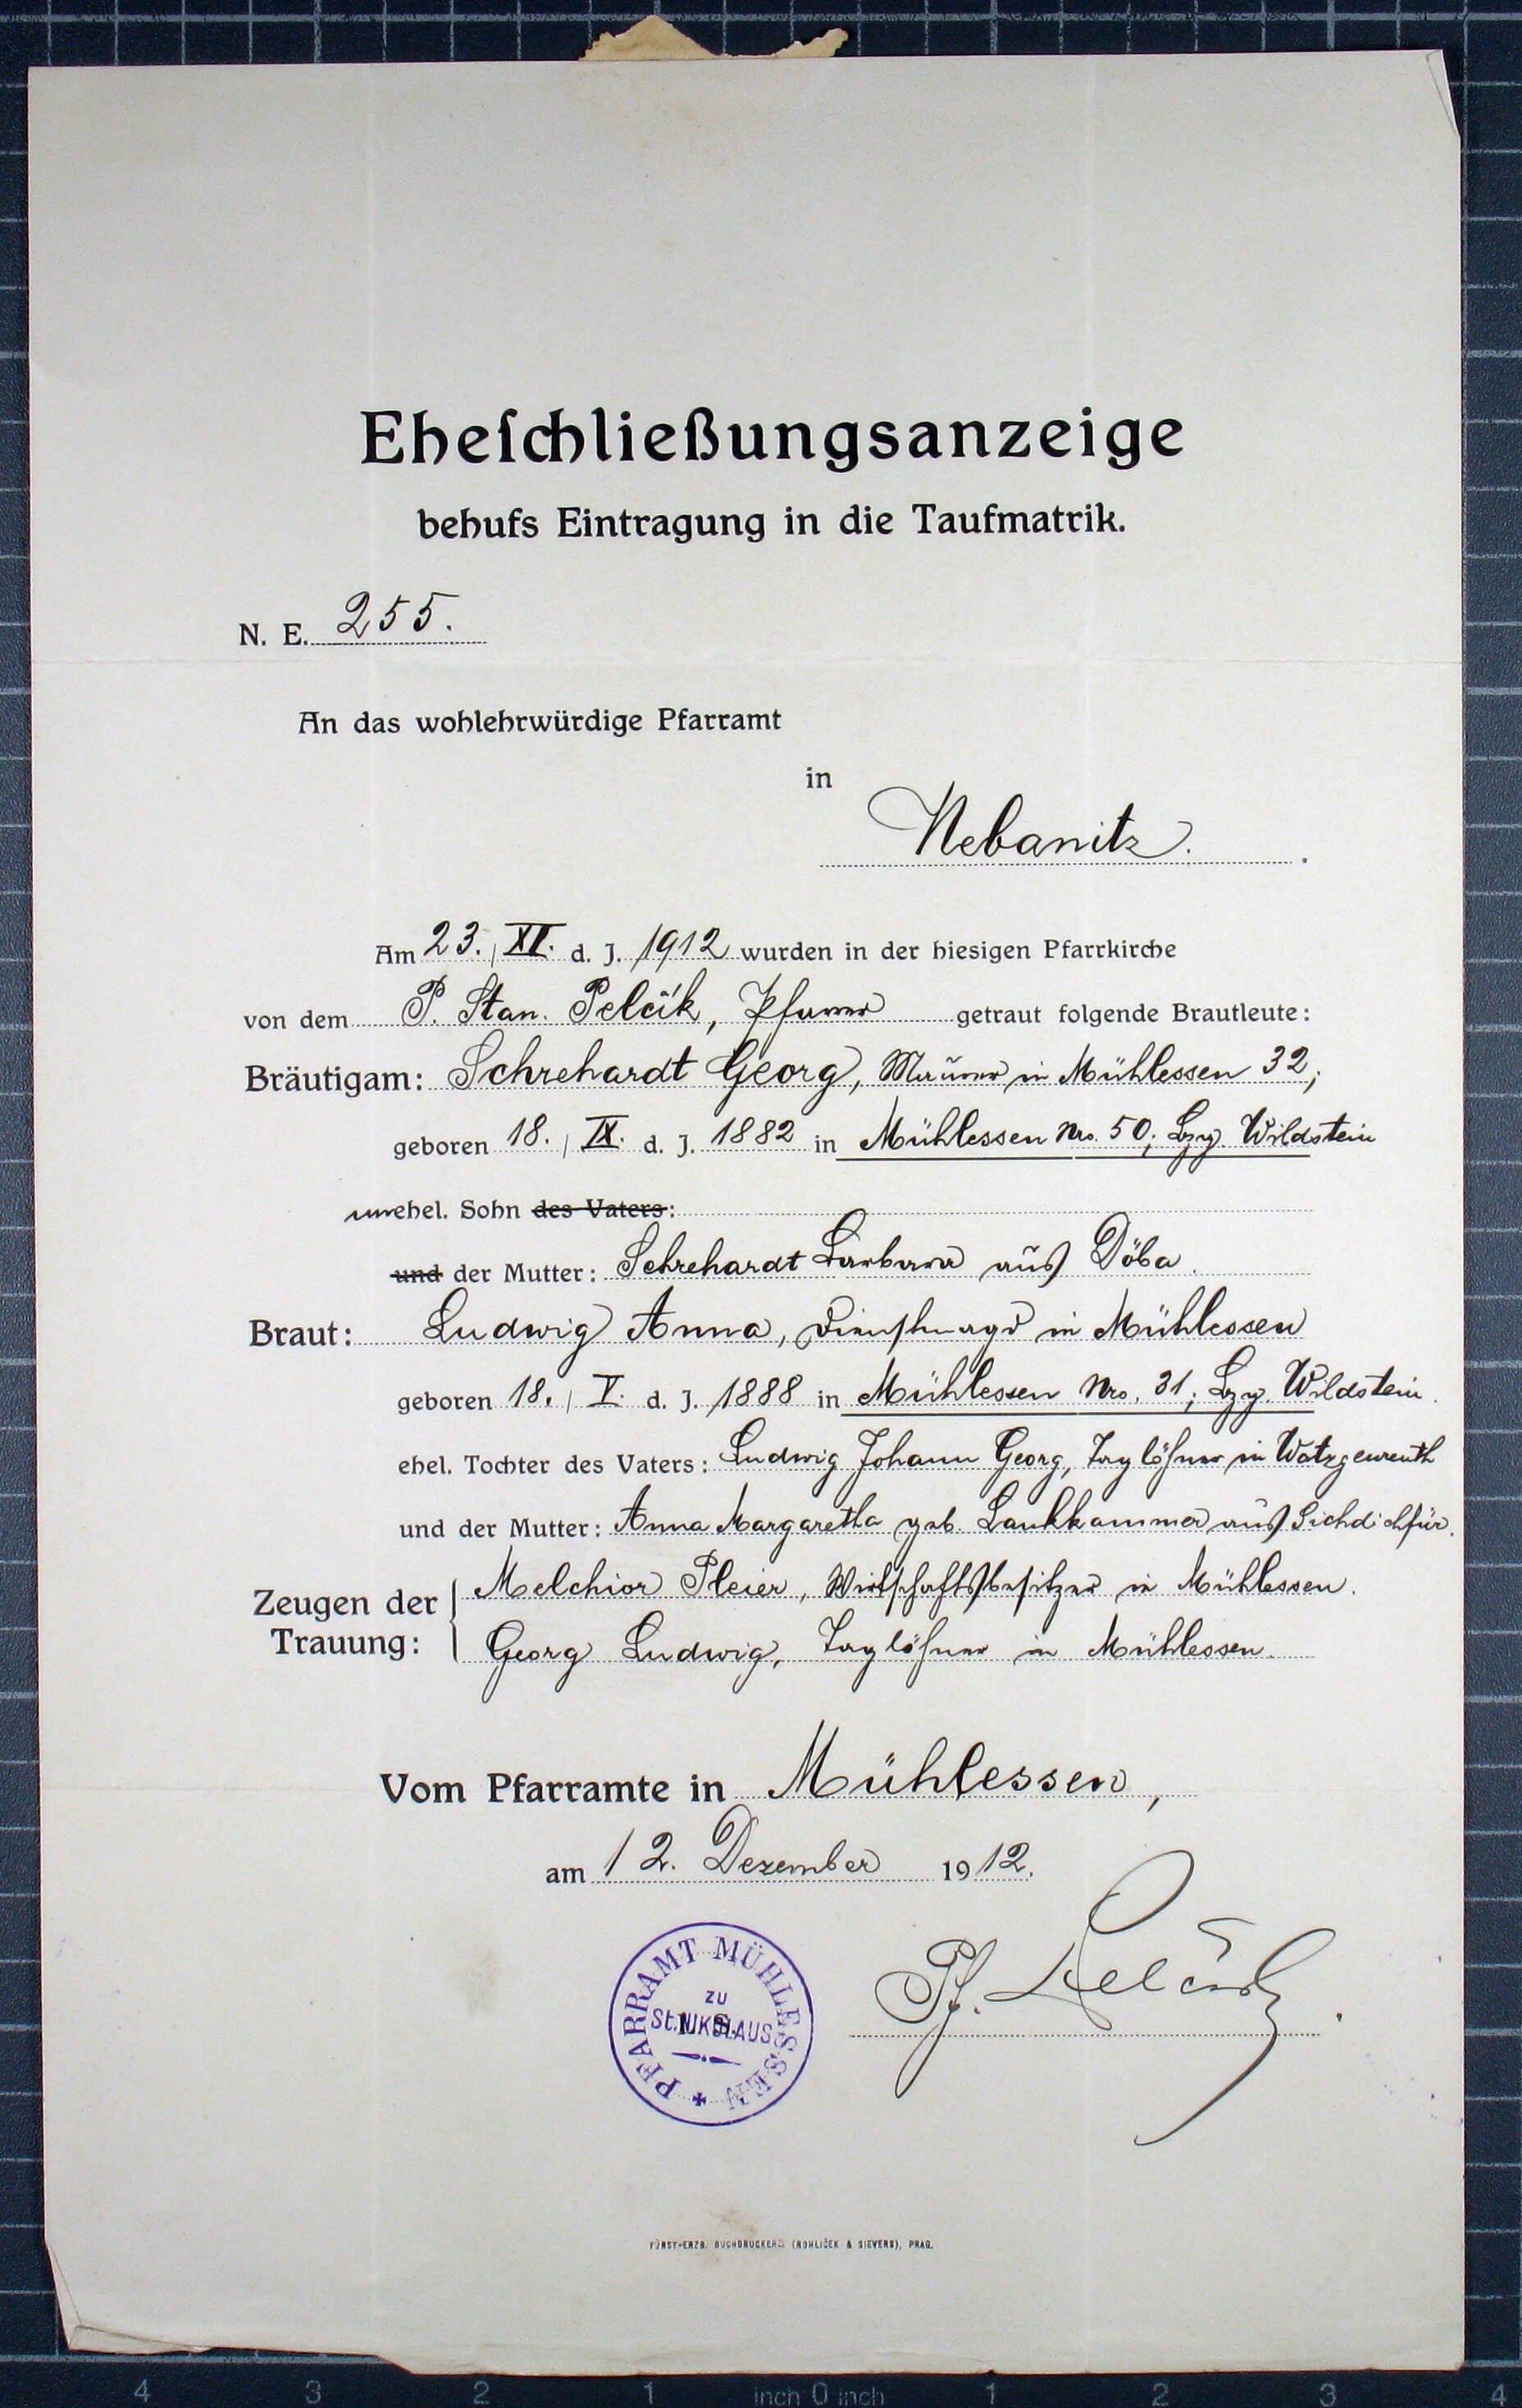 Eheſchließungsanzeige
behufs Eintragung in die Taufmatrik.
N. E. 255.
An das wohlehrwürdige Pfarramt
in
Nebanitz.
Am 23. / XI. d. J. 1912 wurden in der hiesigen Pfarrkirche
von dem P. Stan. Pelčík, Pfarrer getraut folgende Brautleute:
Bräutigam: Schrehardt Georg, Maurer in Mühlessen 32;
geboren 18. / IX. d. J. 1882 in Mühlessen Nro. 50; Bzg. Wildstein
unehel. Sohn des Vaters:
und der Mutter: Schrehardt Barbara aus Döba.
Braut: Ludwig Anna, Dienstmagd in Mühlessen
geboren 18. / V. d. J. 1888 in Mühlessen Nro. 31; Bzg. Wildstein.
ehel. Tochter des Vaters: Ludwig Johann Georg, Taglöhner in Watzgenreuth
und der Mutter: Anna Margaretha geb. Lankkammer aus Sichdichfür.
Zeugen der Trauung: Melchior Pleier, Wirtschaftsbesitzer in Mühlessen.
Georg Ludwig, Taglöhner in Mühlessen.
Vom Pfarramte in Mühlessen,
am 12. Dezember 1912.
PFARRAMT MÜHLESSEN
ZU
St. NIKOLAUS
L. S.
Pf. Pelčík
FÜRST-ERZB. BUCHDRUCKEREI (ROHLIČEK & SIEVERS), PRAG.
4 3 2 1 inch 0 inch 1 2 3 4